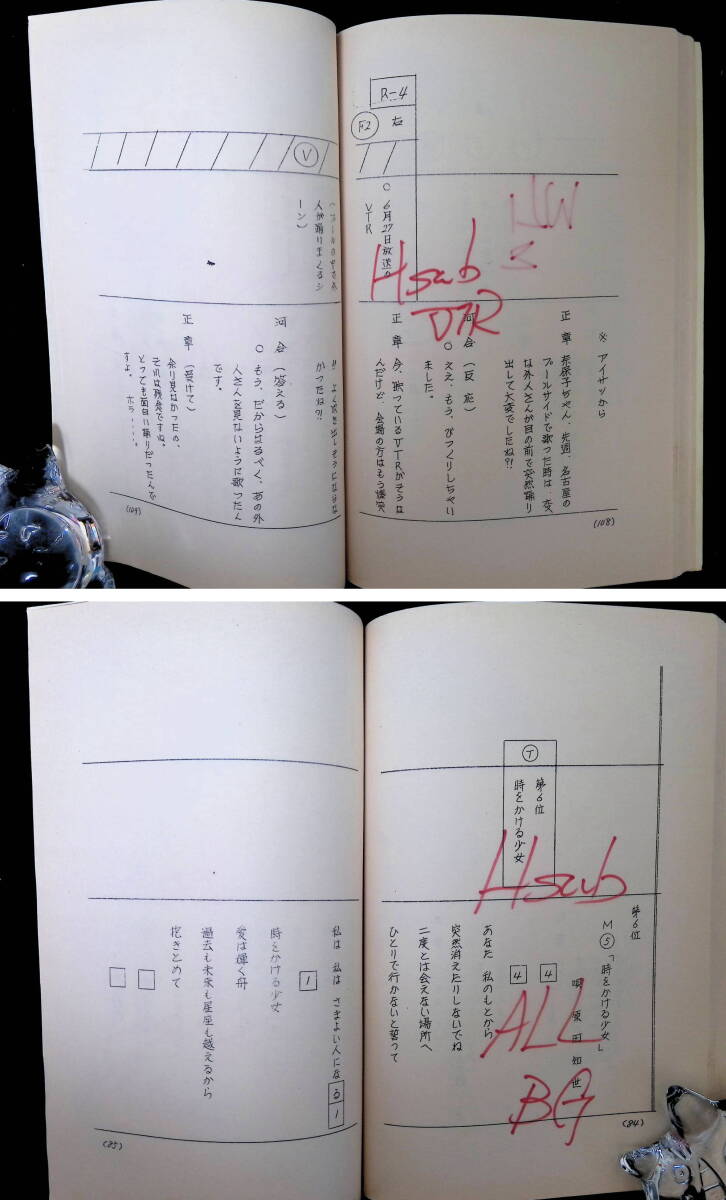 R-4
F2 右
○ 6月27日放送の
VTR
NW
Hsub
VTR
※ アイサツから
正章 奈保子ちゃん、先週、名古屋の
プールサイドで歌った時は、変
な外人さんが目の前で突然踊り
出して大変でしたね?!
河合(反応)
○ ええ、もう、びっくりしちゃい
ました。
正章 今、歌っているVTRがそうな
んだけど、会場の方はもう爆笑
(108)
V
人が踊りまくるシ
ーン)
!! よく吹き出しそうにならな
かったね?!
河合(答える)
○ もう、だからなるべく、あの外
人さんを見ないように歌ったん
です。
正章(受けて)
余り見なかったの、
それは残念ですね。
とっても面白い踊りだったんで
すよ。 ホラ……。
(109)
第6位
M⑤「時をかける少女」
唄 原田知世
T
第6位
時をかける少女
Hsub
4
4
ALL
BG
あなた 私のもとから
突然消えたりしないでね
二度とは会えない場所へ
ひとりで行かないと誓って
(84)
私は 私は さまよい人になる
1
1
時をかける少女
愛は輝く舟
過去も未来も星座も越えるから
抱きとめて
(85)